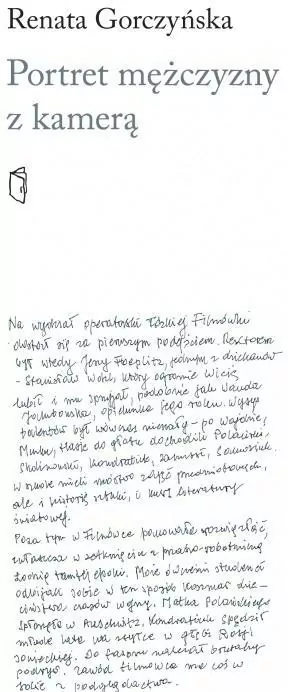 Renata Gorczyńska
Portret mężczyzny
z kamerą
Na wydział operatorski łódzkiej Filmówki
dostał się za pierwszym podejściem. Rektorem
był wtedy Jerzy Toeplitz, jednym z dziekanów
- Stanisław Wohl, który ogromnie Wicię
lubił i mu sprzyjał, podobnie jak Wanda
Jakubowska, opiekunka jego roku. Wysyp
talentów był również niemały - po Wajdzie,
Munku, Hasie do głosu dochodzili Polański,
Skolimowski, Kondratiuk, Zanussi,
W sumie mieli mnóstwo zajęć przedmiotowych,
ale i historię sztuki, i kurs literatury
światowej.
Poza tym w Filmówce panowała rozwiązłość,
zwłaszcza w zetknięciu z pralno-robotniczą
Łodzią tamtej epoki. Może ówcześni studenci
odbijali sobie w ten sposób koszmar dzie-
ciństwa czasów wojny. Matka Polańskiego
spłonęła w Auschwitz, Kondratiuk spędził
młode lata na zsyłce w głębi Rosji
sowieckiej. Do fasonu należał brutalny
podryw. Zawód filmowca ma coś w
sobie z podglądactwa.